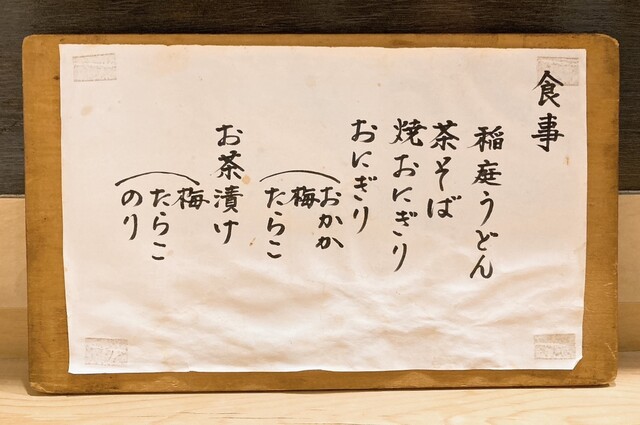 食事
稲庭うどん
茶そば
焼おにぎり
おにぎり
おかか
梅
たらこ
お茶漬け
梅
たらこ
のり